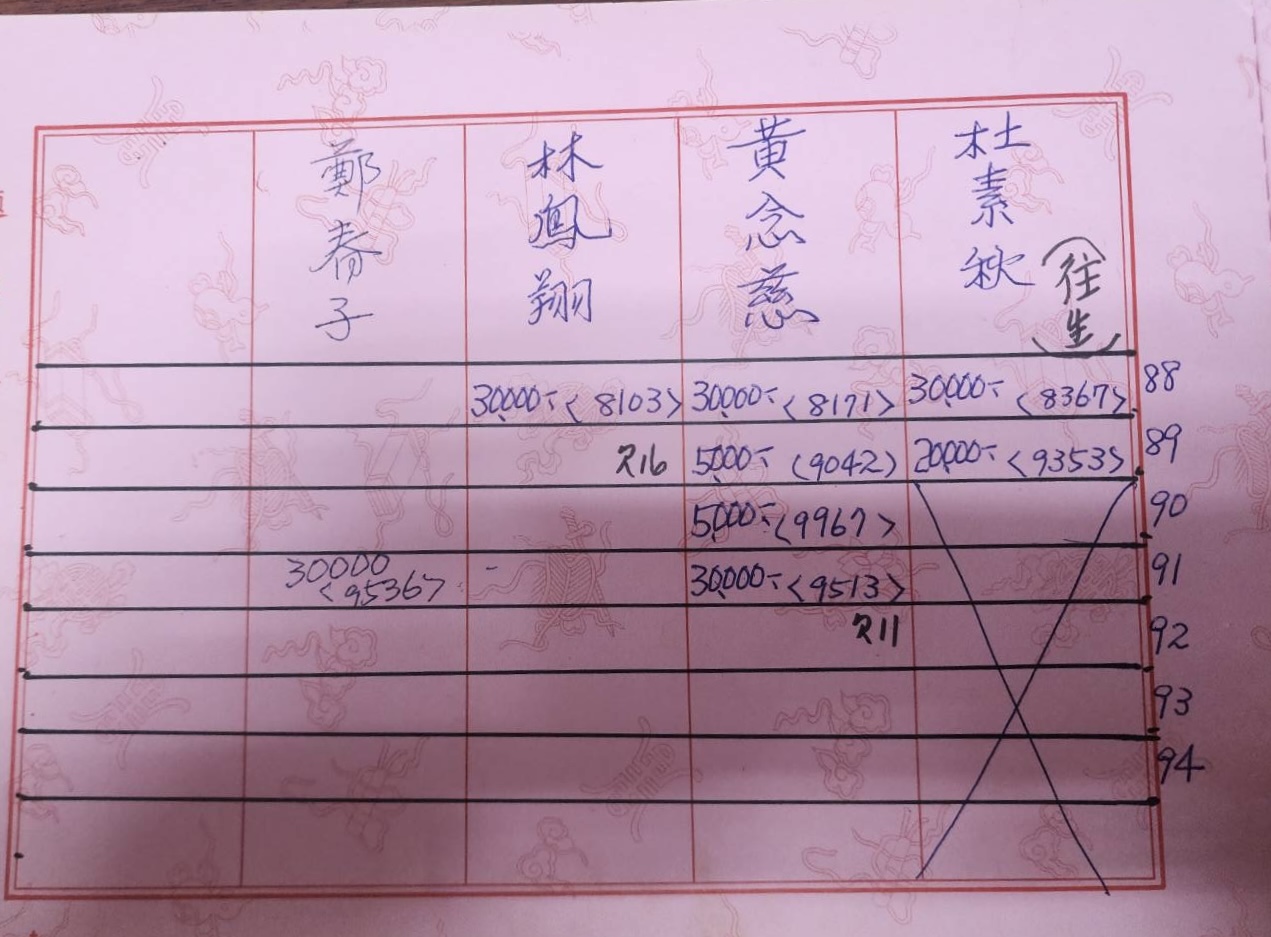 杜素秋
(往生)
黃念慈
林鳳翔
鄭春子
30000-< 8103> 30000-<8171> 30000-<8367> 88
欠16 5000-<9042> 20000-<9353> 89
5000-<9967> 90
30000 <9536> 30000-<9513> 91
欠11 92
93
94